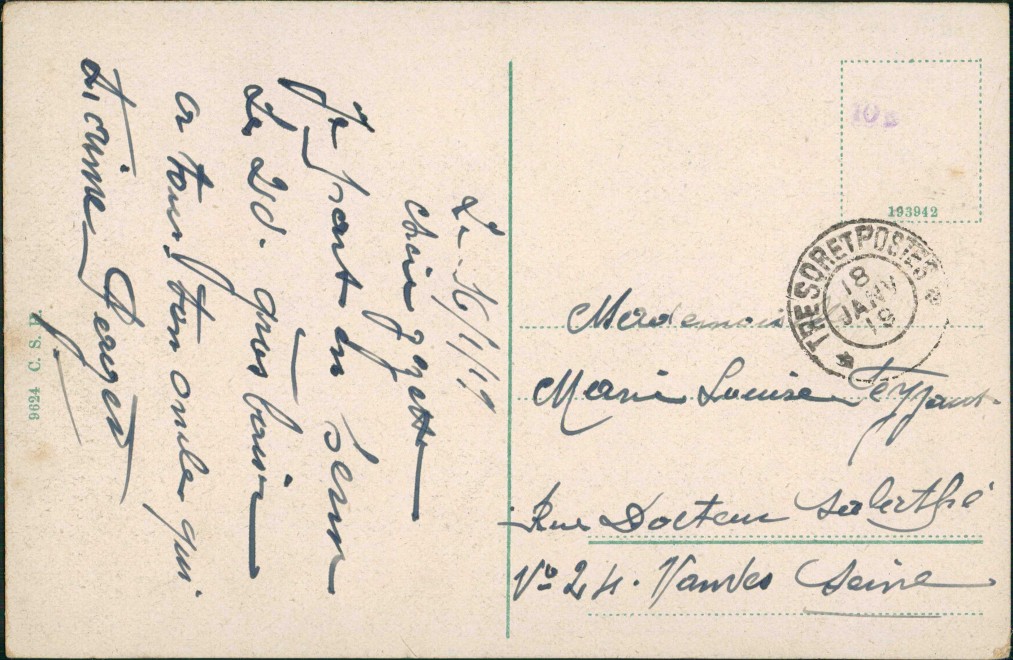 Le 16/1/19
Je part en Perm
Le 20. gros baiser
a tous, ton oncle qui
t'aime Georges
9624 C. S. D.
10 c
193942
TRESOR ET POSTES
18
JANV
19
Mademois
Marie Louise
Rue Docteur
No 24. Vanves Seine